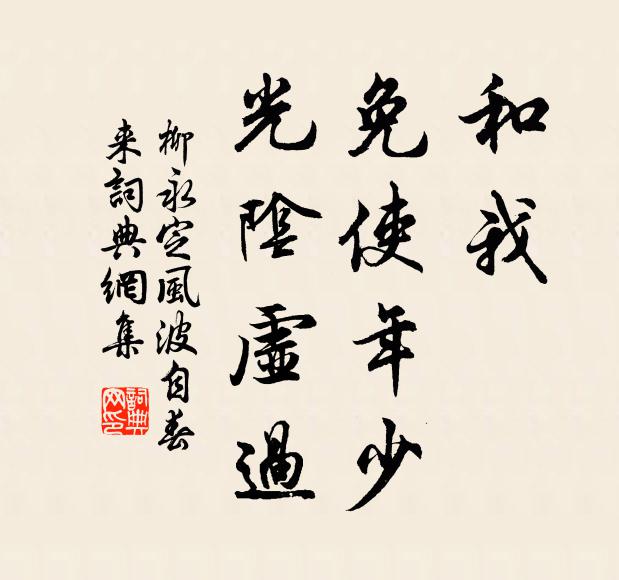 和我
免使年少
光陰虛過
柳永定風波自春
来詞典網集
詞典
网印